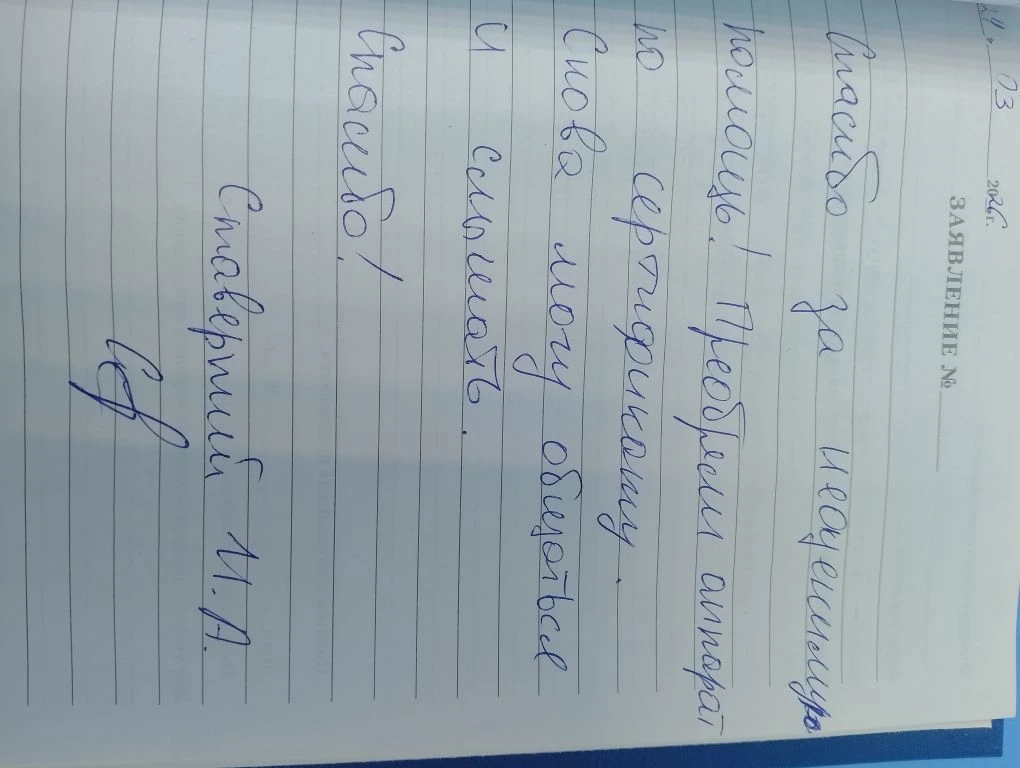 24 » 03 2026г.
ЗАЯВЛЕНИЕ №
Спасибо за неоценимую
помощь! Преобрели аппарат
по сертификату.
Снова могу общаться
и слышать.
Спасибо!
Ставерпий И.А.